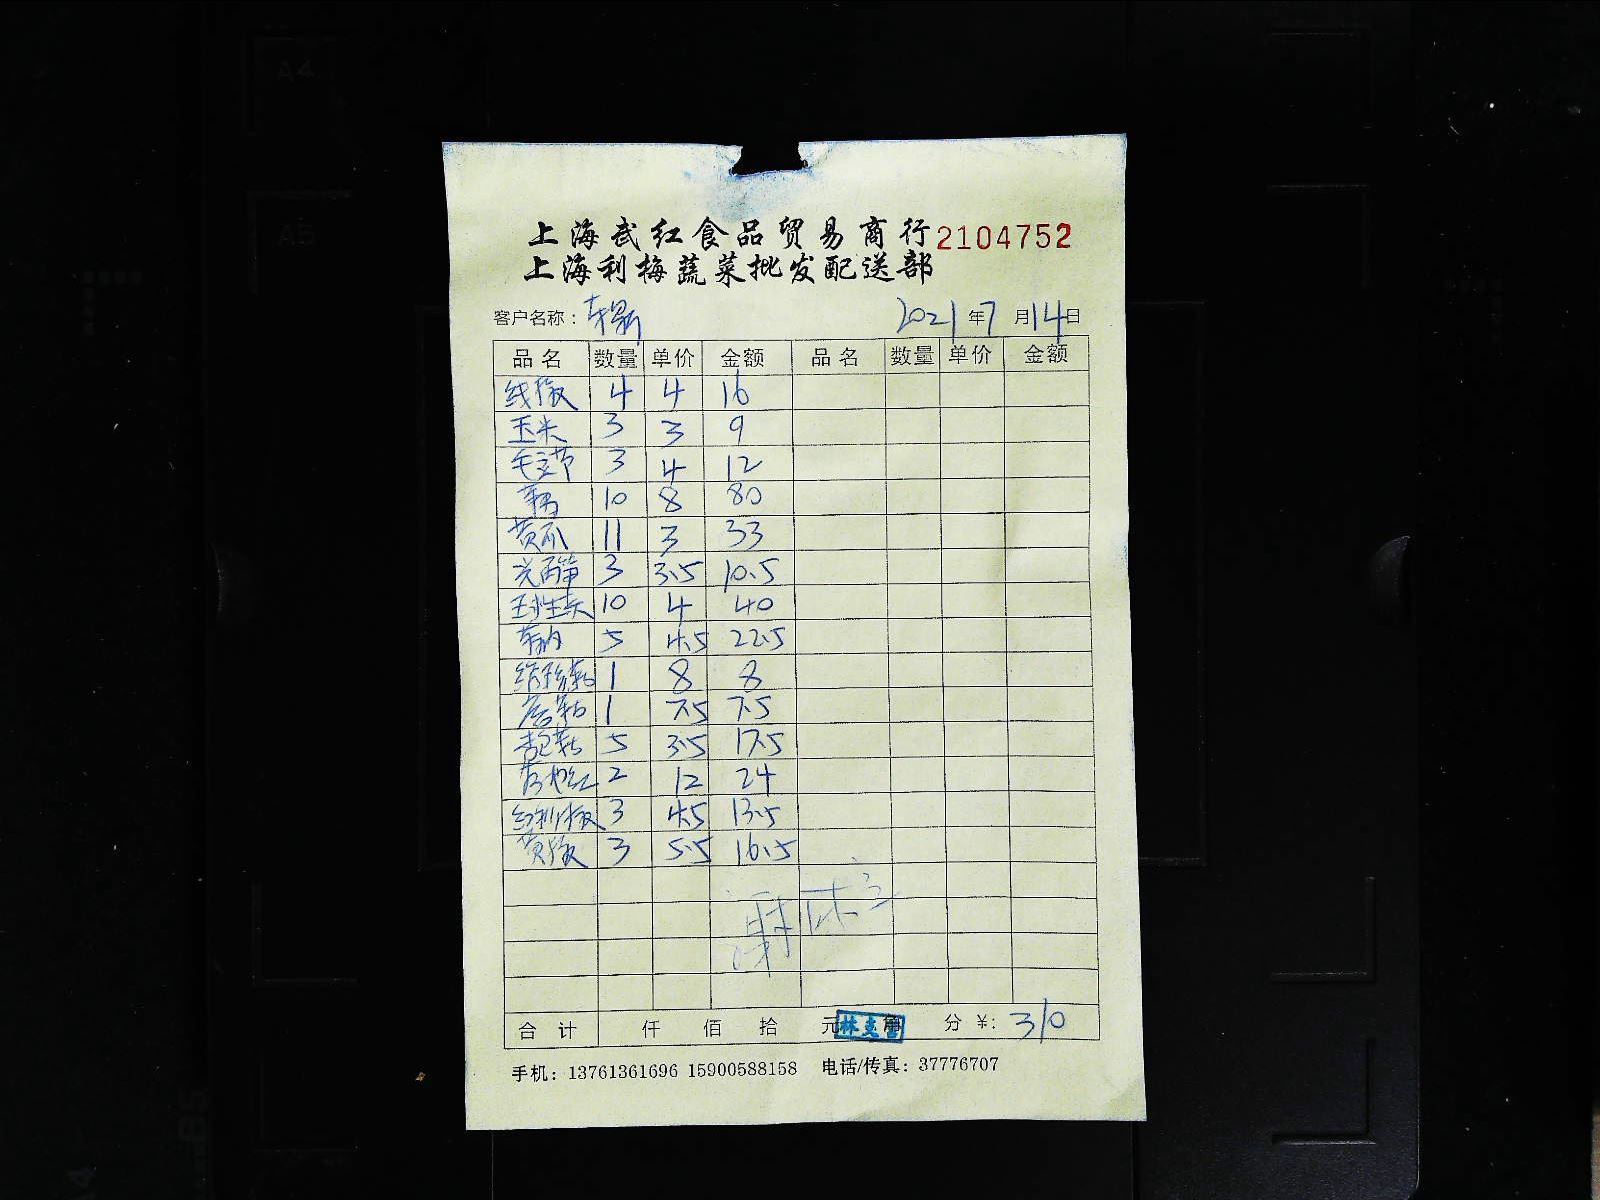 上海武红食品贸易商行 2104752
上海利梅蔬菜批发配送部
客户名称： 2021年7月14日
品名 数量 单价 金额 品名 数量 单价 金额
线椒 4 4 16
玉米 3 3 9
毛豆节 3 4 12
藕 10 8 80
黄瓜 11 3 33
光莴笋 3 3.5 10.5
玉生菜 10 4 40
5 4.5 22.5
结珍菇 1 8 8
1 7.5 7.5
杏包菇 5 3.5 17.5
2 12 24
红利椒 3 4.5 13.5
黄椒 3 5.5 16.5
谢
合计 仟 佰 拾 元 角 分 ¥: 310
手机：13761361696 15900588158 电话/传真：37776707